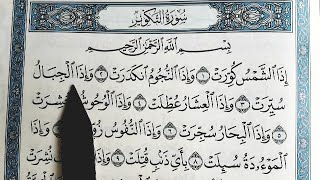 سُورَةُ التَّكْوِيرِ
بِسْمِ اللَّهِ الرَّحْمَٰنِ الرَّحِيمِ
إِذَا الشَّمْسُ كُوِّرَتْ ١ وَإِذَا النُّجُومُ انْكَدَرَتْ ٢ وَإِذَا الْجِبَالُ
سُيِّرَتْ ٣ وَإِذَا الْعِشَارُ عُطِّلَتْ ٤ وَإِذَا الْوُحُوشُ حُشِرَتْ
٥ وَإِذَا الْبِحَارُ سُجِّرَتْ ٦ وَإِذَا النُّفُوسُ زُوِّجَتْ ٧ وَإِذَا
الْمَوْءُودَةُ سُئِلَتْ ٨ بِأَيِّ ذَنْبٍ قُتِلَتْ ٩ وَإِذَا الصُّحُفُ نُشِرَتْ